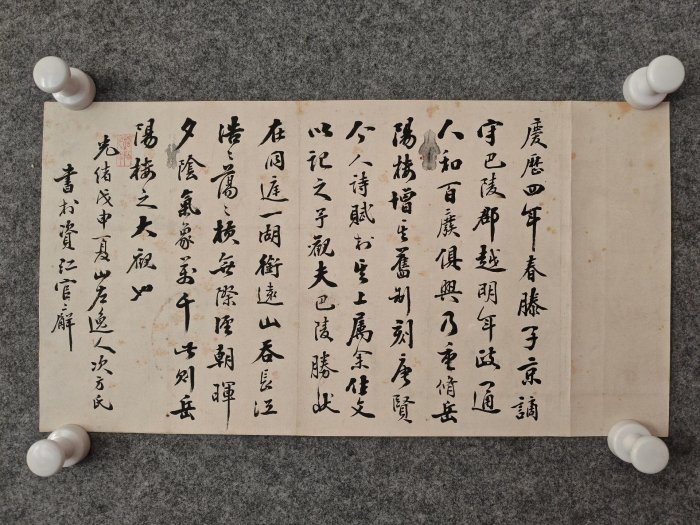 慶歷四年春滕子京謫
守巴陵郡越明年政通
人和百廢俱興乃重脩岳
陽樓增其舊制刻唐賢
今人詩賦於其上屬余作文
以記之予觀夫巴陵勝狀
在洞庭一湖銜遠山吞長江
浩〻蕩〻橫無際涯朝暉
夕陰氣象萬千此則岳
陽樓之大觀也
光緒戊申夏山左逸人次方氏
書於資江官廨